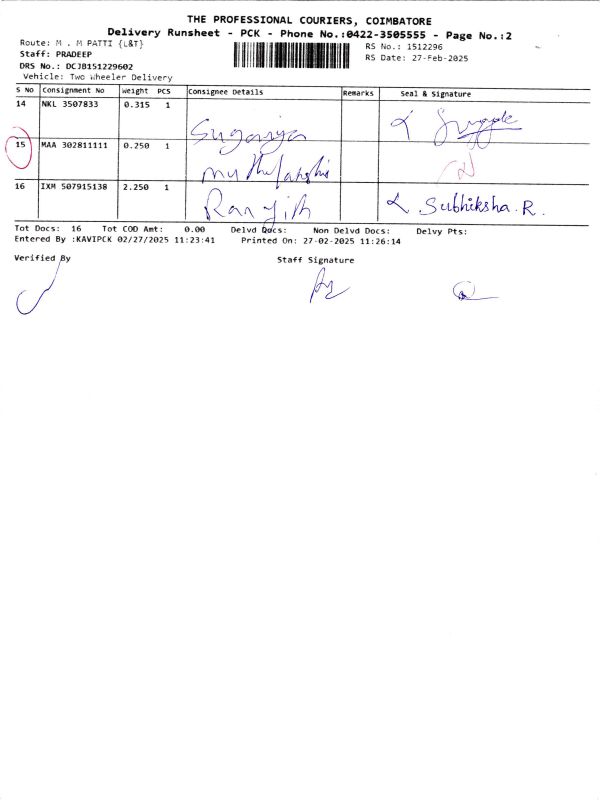 THE PROFESSIONAL COURIERS, COIMBATORE
Delivery Runsheet - PCK - Phone No.:0422-3505555 - Page No.:2
Route: M . M PATTI {L&T}
RS No.: 1512296
Staff: PRADEEP
RS Date: 27-Feb-2025
DRS No.: DCJB151229602
Vehicle: Two Wheeler Delivery
S No Consignment No Weight PCS Consignee Details Remarks Seal & Signature
14 NKL 3507833 0.315 1 Suganya
15 MAA 302811111 0.250 1
16 IXM 507915138 2.250 1 Ranjith Subhiksha.R.
Tot Docs: 16 Tot COD Amt: 0.00 Delvd Docs: Non Delvd Docs: Delvy Pts:
Entered By :KAVIPCK 02/27/2025 11:23:41 Printed On: 27-02-2025 11:26:14
Verified By Staff Signature